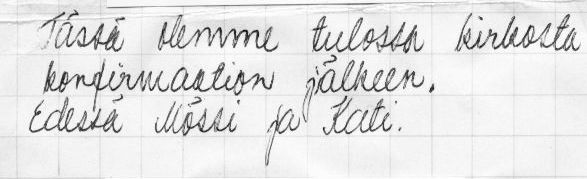 Tässä olemme tulossa kirkosta
konfirmaation jälkeen.
Edessä Mössi ja Kati.